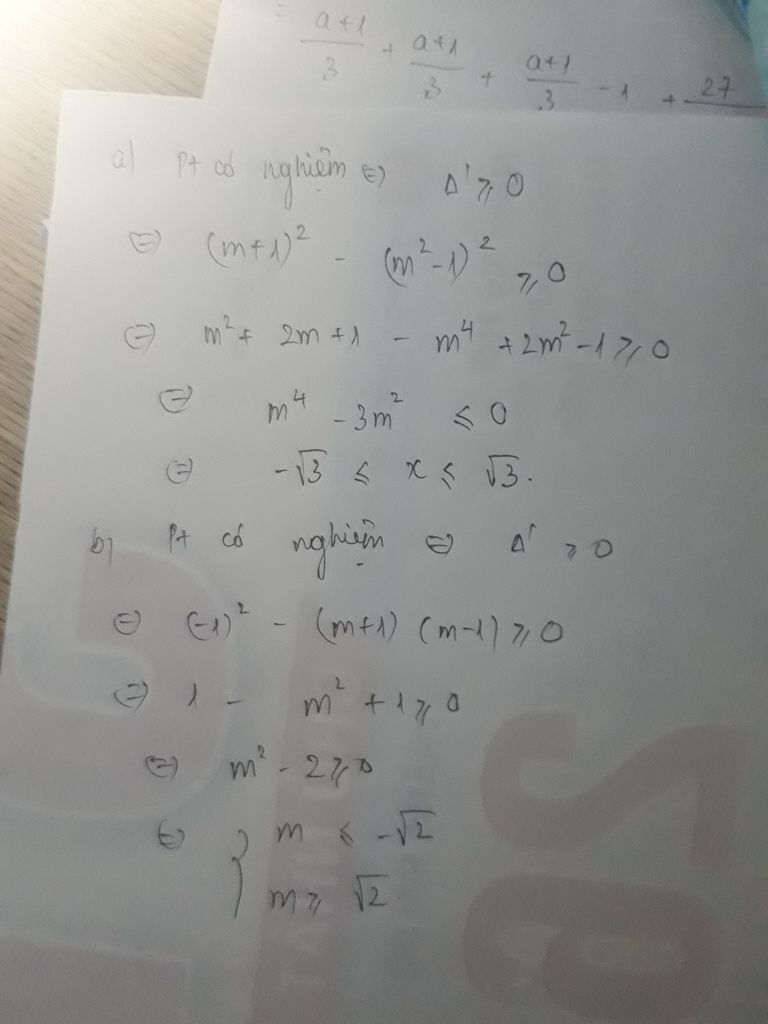 = a+1/3 + a+1/3 + a+1/3 - 1 + 27
a) Pt có nghiệm ⇔ Δ' ⩾ 0
⇔ (m+1)² - (m²-1)² ⩾ 0
⇔ m² + 2m + 1 - m⁴ + 2m² - 1 ⩾ 0
⇔ m⁴ - 3m² ⩽ 0
⇔ -√3 ⩽ x ⩽ √3.
b) Pt có nghiệm ⇔ Δ' ⩾ 0
⇔ (-1)² - (m+1) (m-1) ⩾ 0
⇔ 1 - m² + 1 ⩾ 0
⇔ m² - 2 ⩾ 0
⇔ { m ⩽ -√2
m ⩾ √2